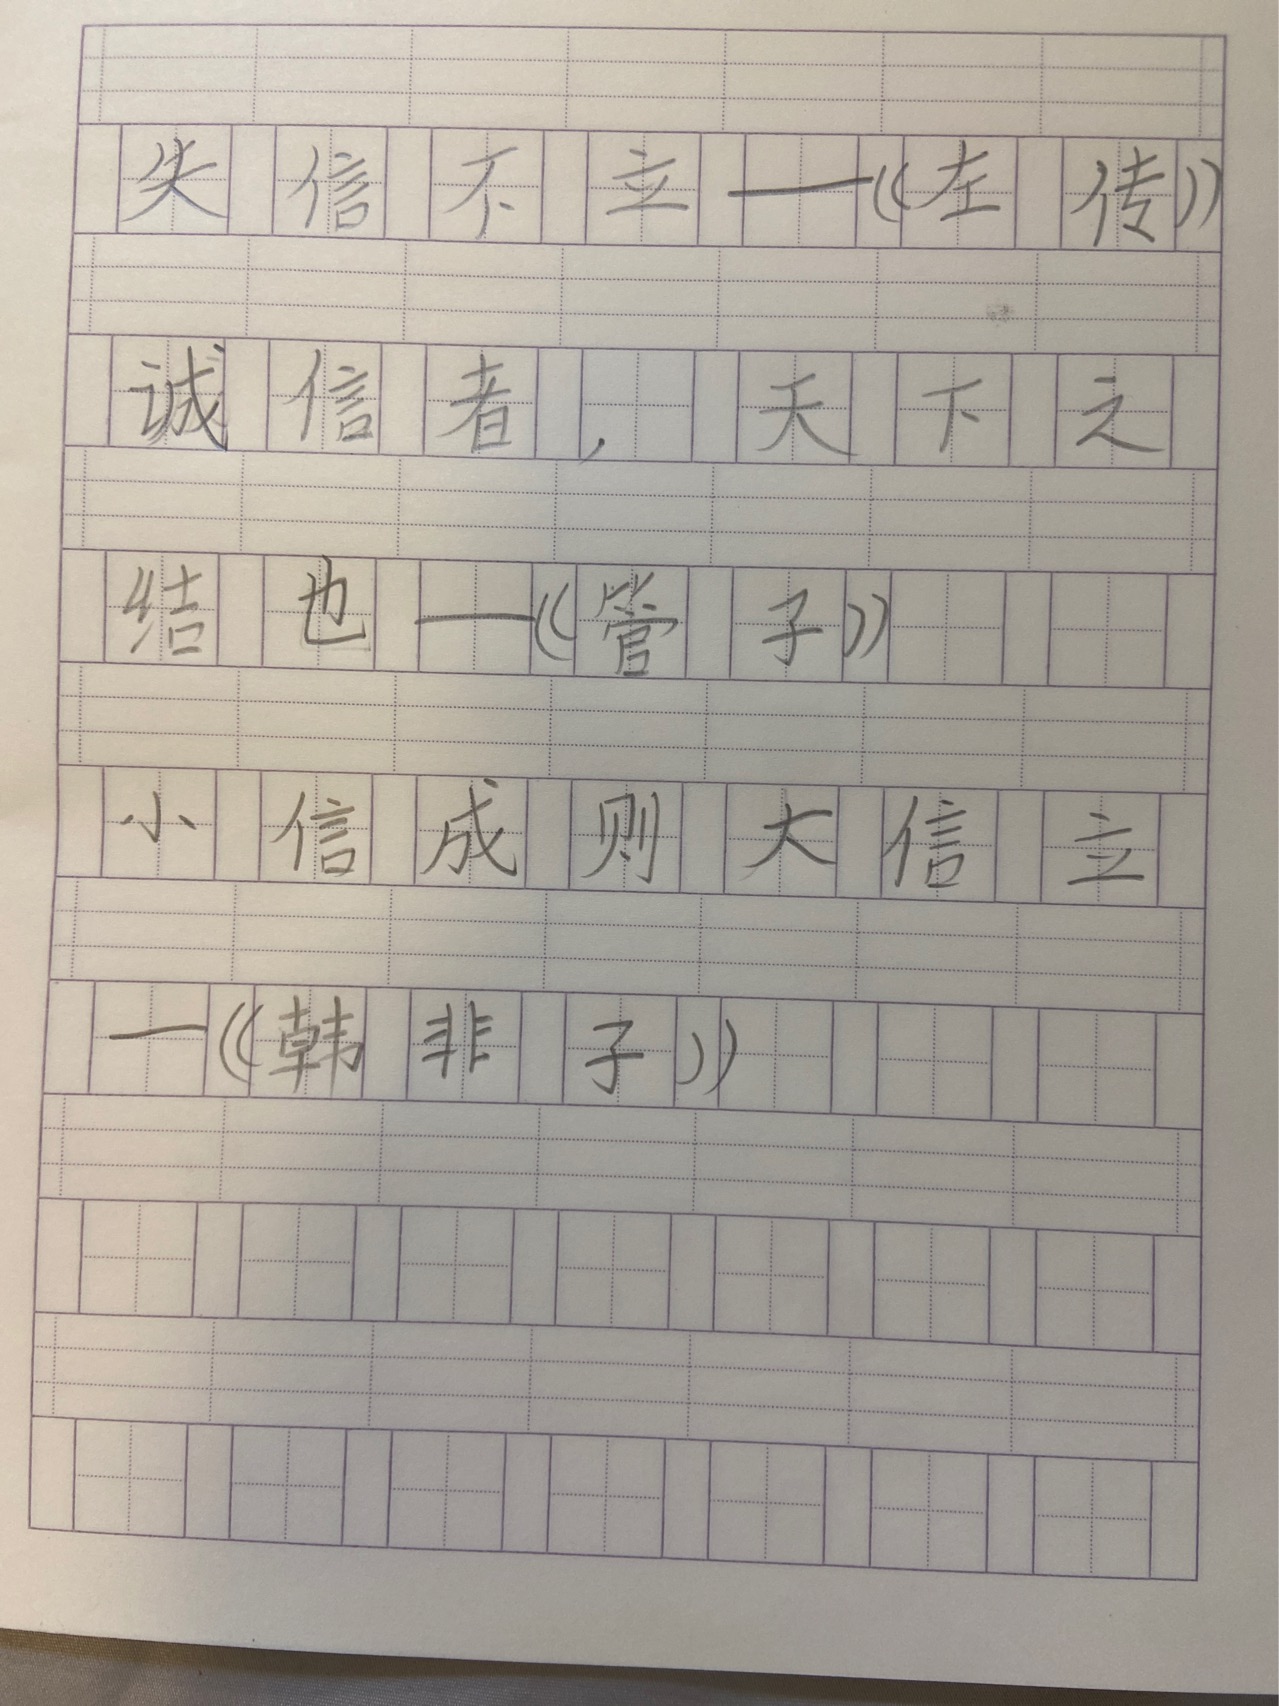 失信不立—《左传》
诚信者，天下之
结也—《管子》
小信成则大信立
—《韩非子》